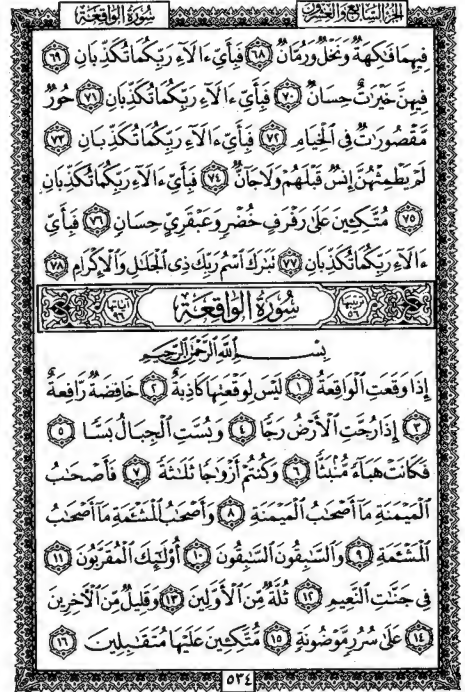 الجزء السابع والعشرون سورة الواقعة
فِيهِمَا فَٰكِهَةٌ وَنَخْلٌ وَرُمَّانٌ ٦٨ فَبِأَيِّ ءَالَآءِ رَبِّكُمَا تُكَذِّبَانِ ٦٩
فِيهِنَّ خَيْرَٰتٌ حِسَانٌ ٧٠ فَبِأَيِّ ءَالَآءِ رَبِّكُمَا تُكَذِّبَانِ ٧١ حُورٌ
مَّقْصُورَٰتٌ فِي ٱلْخِيَامِ ٧٢ فَبِأَيِّ ءَالَآءِ رَبِّكُمَا تُكَذِّبَانِ ٧٣
لَمْ يَطْمِثْهُنَّ إِنسٌ قَبْلَهُمْ وَلَا جَآنٌّ ٧٤ فَبِأَيِّ ءَالَآءِ رَبِّكُمَا تُكَذِّبَانِ
٧٥ مُتَّكِـِٔينَ عَلَىٰ رَفْرَفٍ خُضْرٍ وَعَبْقَرِيٍّ حِسَانٍ ٧٦ فَبِأَيِّ
ءَالَآءِ رَبِّكُمَا تُكَذِّبَانِ ٧٧ تَبَٰرَكَ ٱسْمُ رَبِّكَ ذِي ٱلْجَلَٰلِ وَٱلْإِكْرَامِ ٧٨
ترتيبها ٥٦ سُورَةُ الوَاقِعَة آياتها ٩٦
بِسْمِ ٱللَّهِ ٱلرَّحْمَٰنِ ٱلرَّحِيمِ
إِذَا وَقَعَتِ ٱلْوَاقِعَةُ ١ لَيْسَ لِوَقْعَتِهَا كَاذِبَةٌ ٢ خَافِضَةٌ رَّافِعَةٌ
٣ إِذَا رُجَّتِ ٱلْأَرْضُ رَجًّا ٤ وَبُسَّتِ ٱلْجِبَالُ بَسًّا ٥
فَكَانَتْ هَبَآءً مُّنۢبَثًّا ٦ وَكُنتُمْ أَزْوَٰجًا ثَلَٰثَةً ٧ فَأَصْحَٰبُ
ٱلْمَيْمَنَةِ مَآ أَصْحَٰبُ ٱلْمَيْمَنَةِ ٨ وَأَصْحَٰبُ ٱلْمَشْـَٔمَةِ مَآ أَصْحَٰبُ
ٱلْمَشْـَٔمَةِ ٩ وَٱلسَّٰبِقُونَ ٱلسَّٰبِقُونَ ١٠ أُو۟لَٰٓئِكَ ٱلْمُقَرَّبُونَ ١١
فِي جَنَّٰتِ ٱلنَّعِيمِ ١٢ ثُلَّةٌ مِّنَ ٱلْأَوَّلِينَ ١٣ وَقَلِيلٌ مِّنَ ٱلْءَاخِرِينَ
١٤ عَلَىٰ سُرُرٍ مَّوْضُونَةٍ ١٥ مُّتَّكِـِٔينَ عَلَيْهَا مُتَقَٰبِلِينَ ١٦
٥٣٤